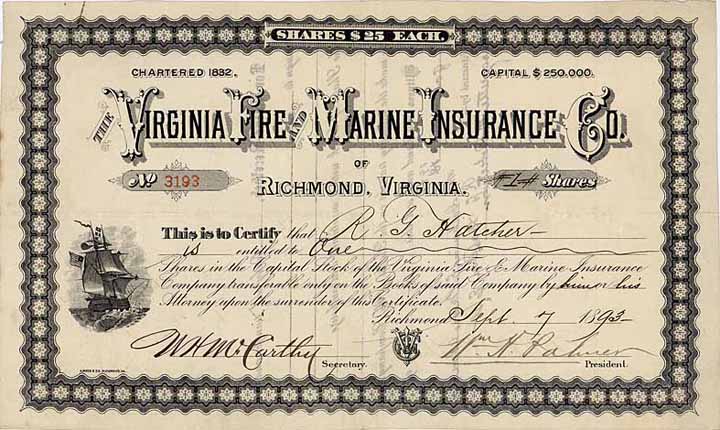 SHARES $25 EACH.
CHARTERED 1832. CAPITAL $250.000.
THE VIRGINIA FIRE AND MARINE INSURANCE CO.
OF
No 3193 RICHMOND, VIRGINIA. #1# Shares
This is to Certify that R. G. Hatcher
is entitled to One
Shares in the Capital Stock of the Virginia Fire & Marine Insurance
Company transferable only on the Books of said Company by him or his
Attorney upon the surrender of this Certificate.
Richmond Sept. 7 1893
W H McCarthy Wm H. Palmer
Secretary. President.